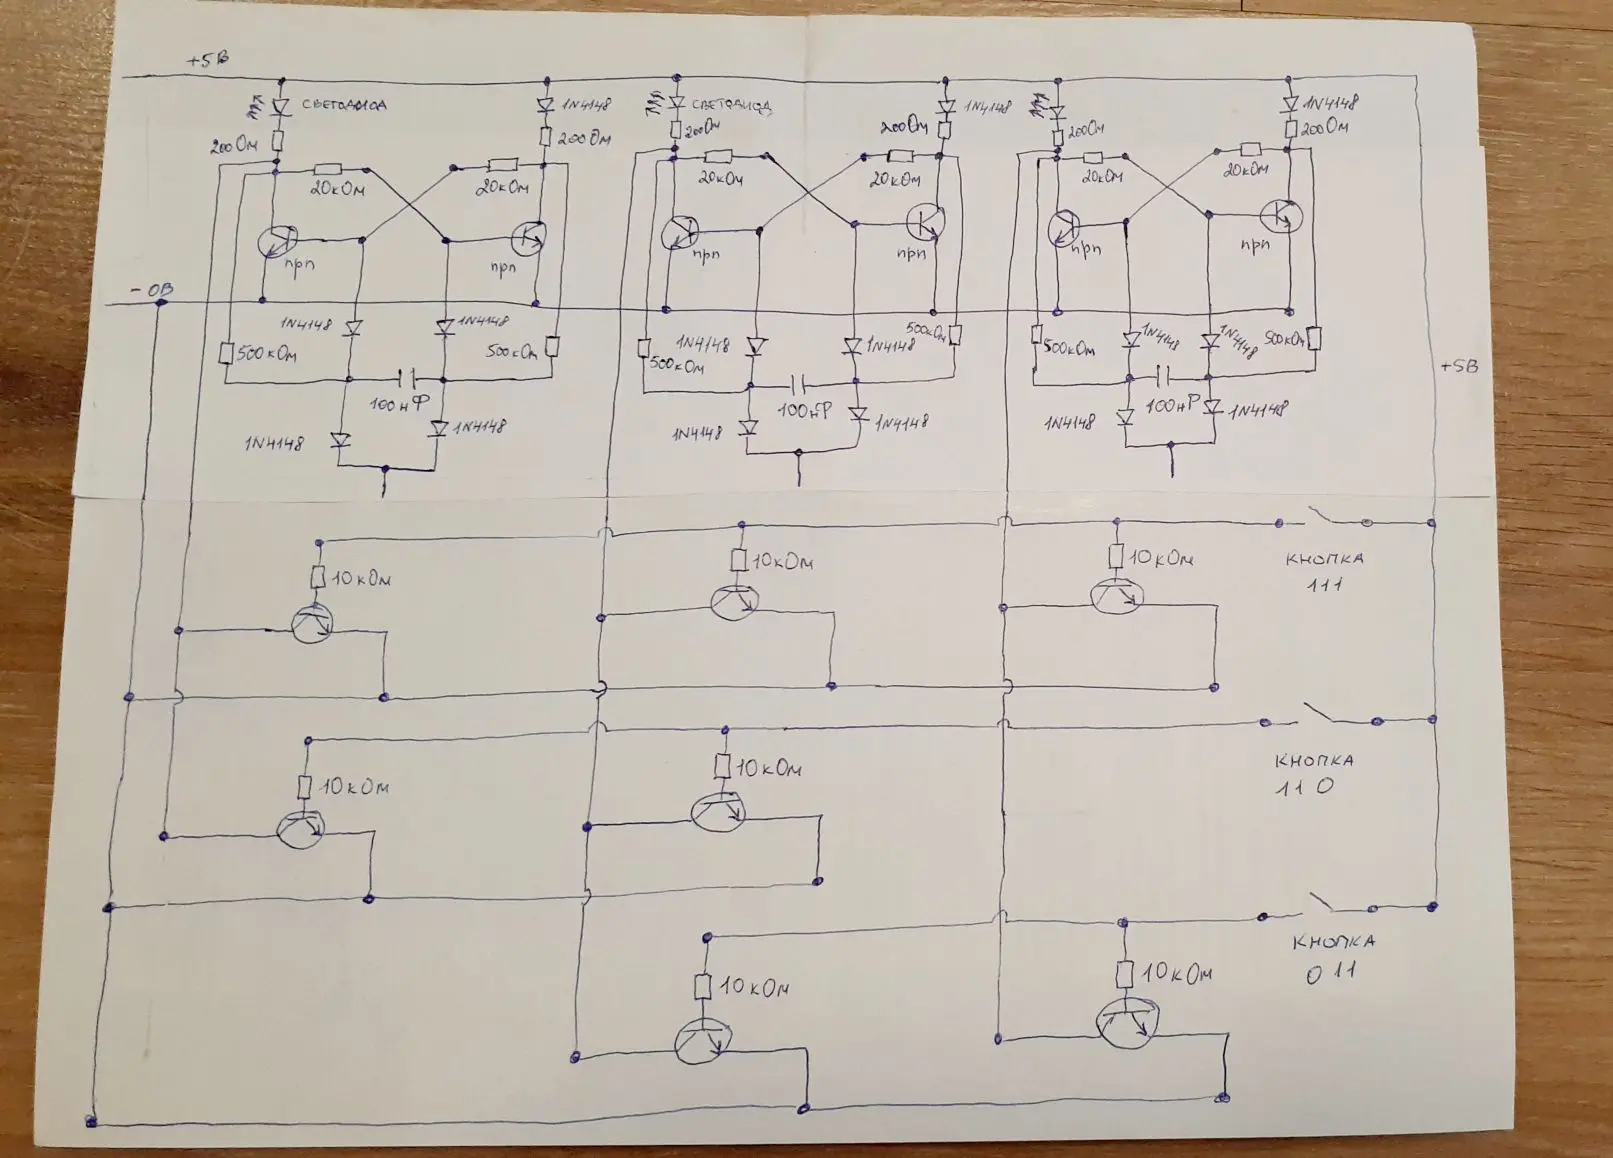 +5В
СВЕТОДИОД
1N4148
СВЕТОДИОД
1N4148
1N4148
200Ом
200Ом
200Ом
200Ом
200Ом
200Ом
20кОм
20кОм
20кОм
20кОм
20кОм
20кОм
прп
прп
прп
прп
прп
прп
- 0В
1N4148
1N4148
1N4148
1N4148
1N4148
1N4148
500кОм
500кОм
500кОм
500кОм
500кОм
500кОм
+5В
100нФ
100нФ
100нФ
1N4148
1N4148
1N4148
1N4148
1N4148
1N4148
10кОм
10кОм
10кОм
КНОПКА
111
10кОм
10кОм
КНОПКА
110
10кОм
10кОм
КНОПКА
011